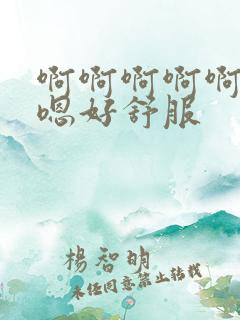 啊啊啊啊啊
嗯好舒服
楊智明
未经同意禁止转载